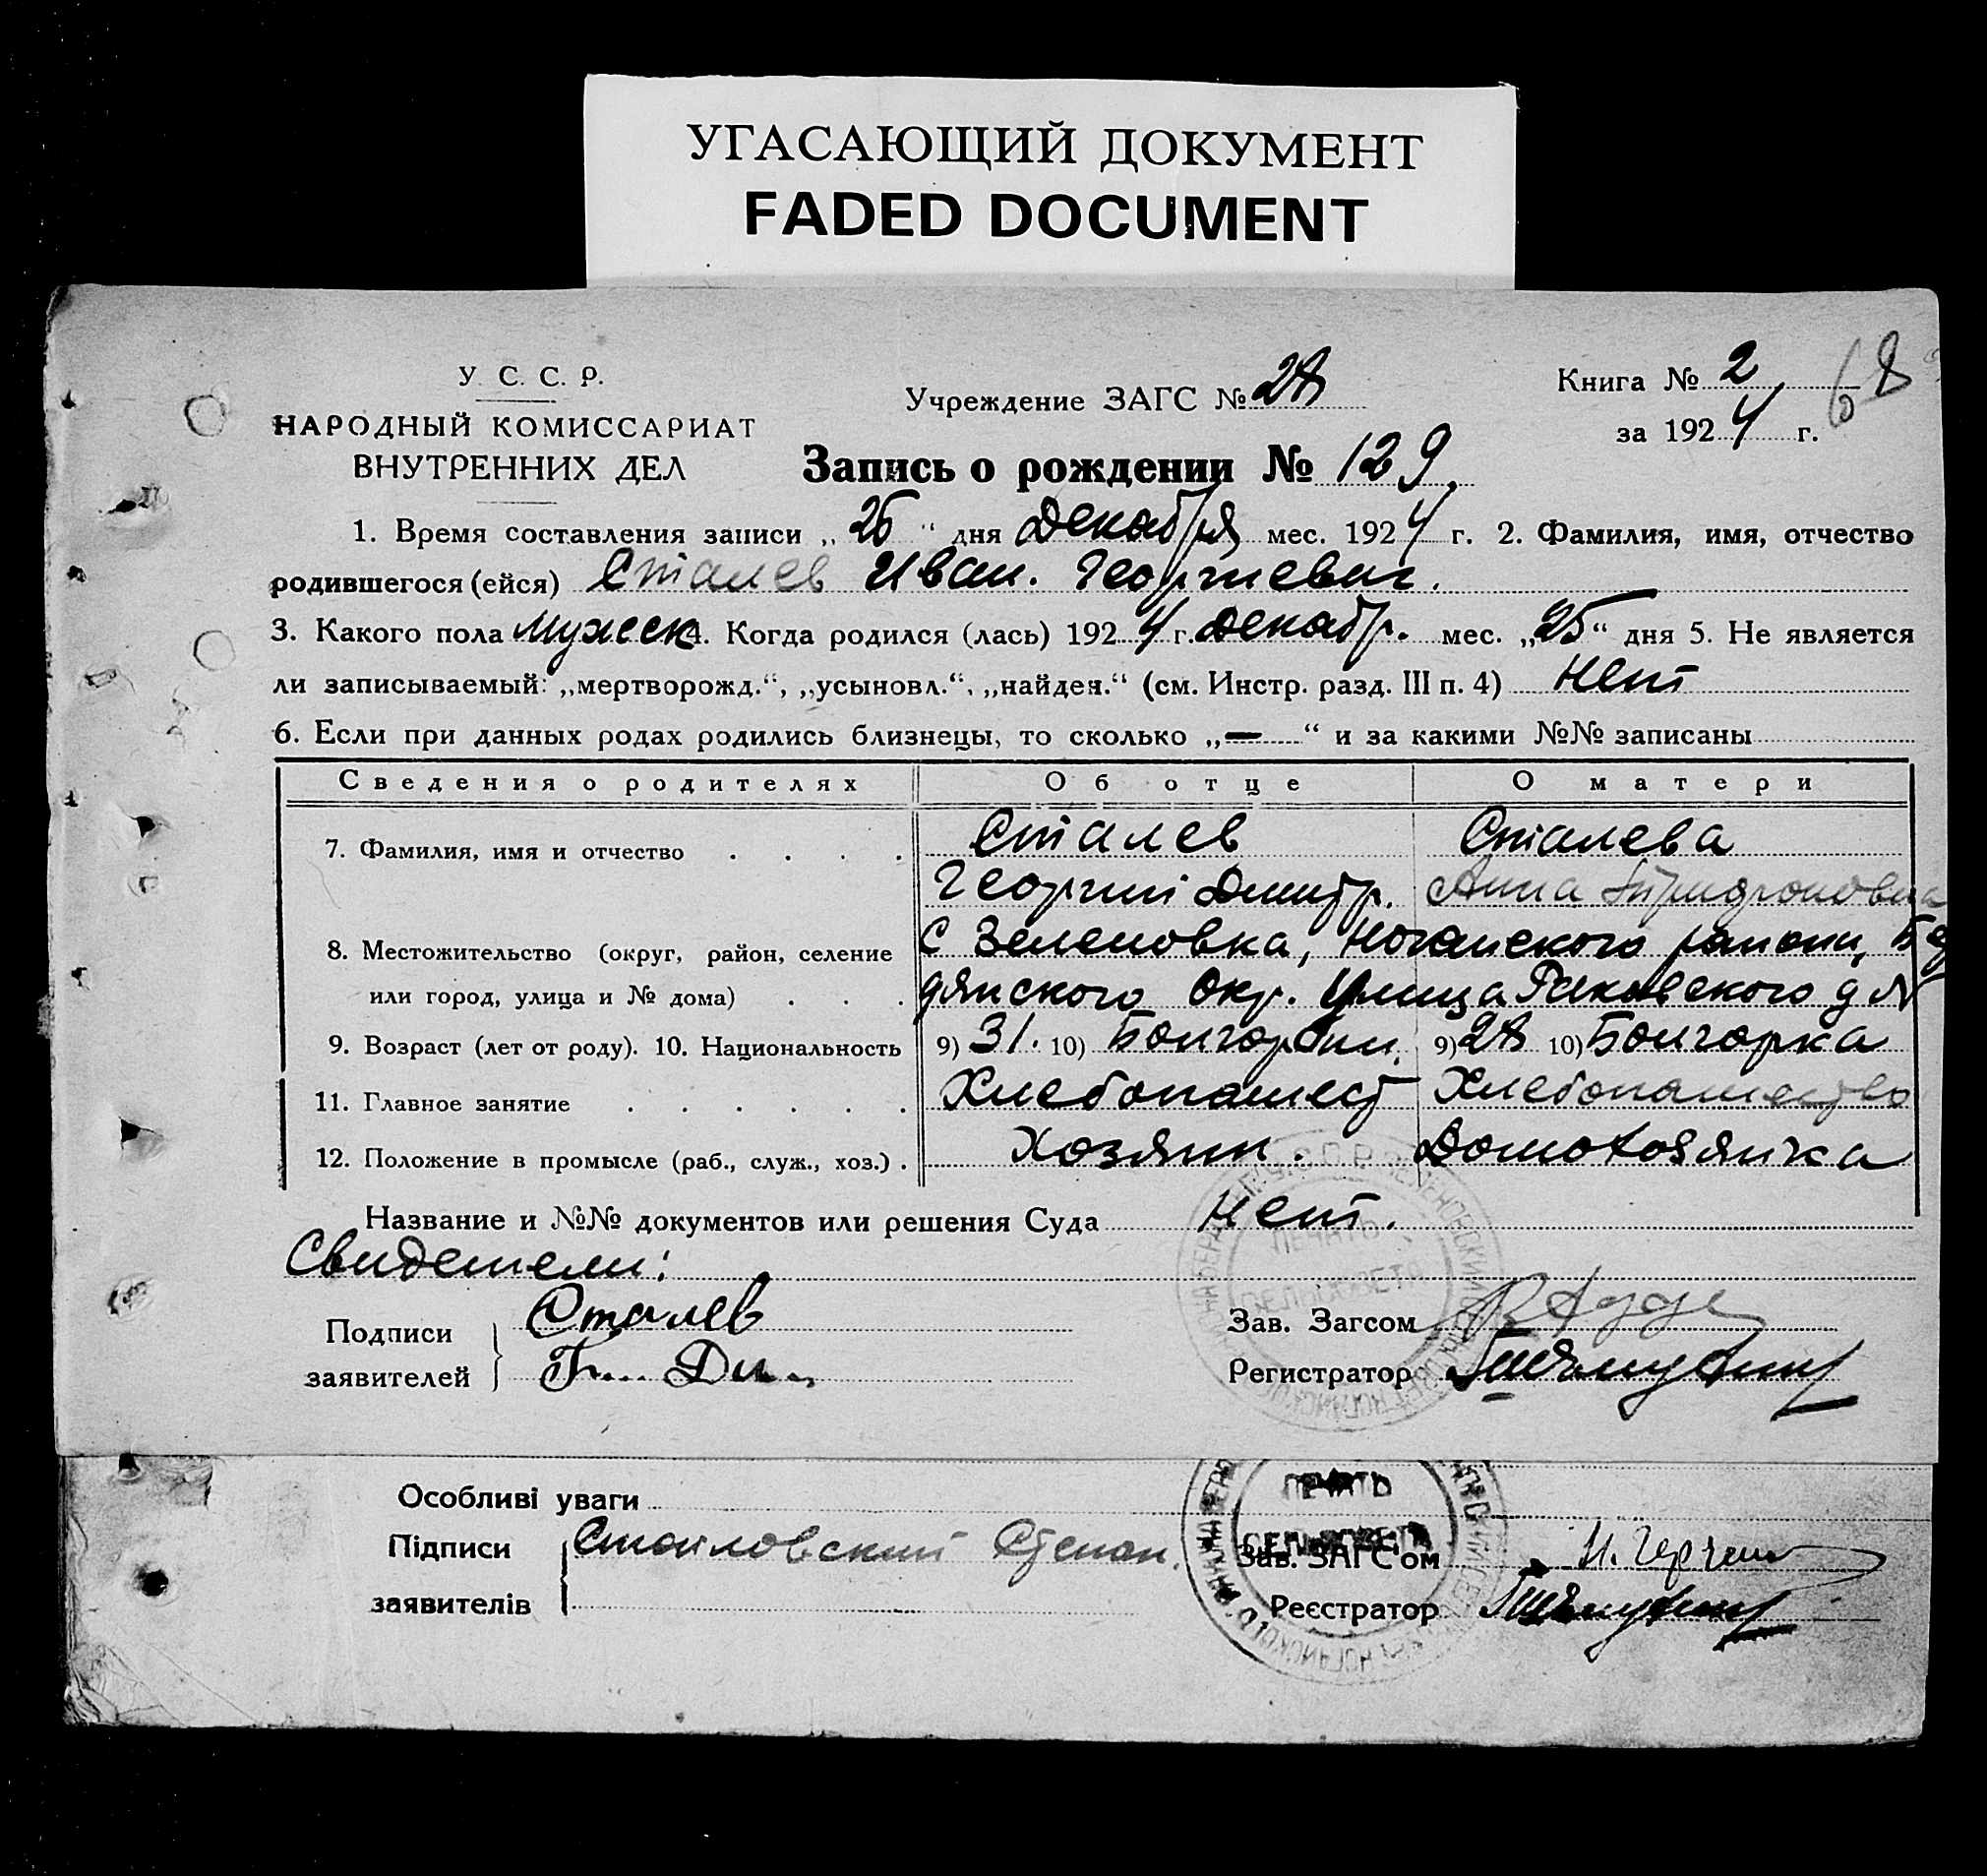 УГАСАЮЩИЙ ДОКУМЕНТ
FADED DOCUMENT
У. С. С. Р.
НАРОДНЫЙ КОМИССАРИАТ
ВНУТРЕННИХ ДЕЛ
Учреждение ЗАГС № 28
Книга № 2
68
за 1924 г.
Запись о рождении № 129.
1. Время составления записи „26“ дня Декабря мес. 1924 г. 2. Фамилия, имя, отчество
родившегося (ейся) Сталев Иван. Георгиевич.
3. Какого пола Мужеск 4. Когда родился (лась) 1924 г. Декабр. мес. „25“ дня 5. Не является
ли записываемый: „мертворожд.“, „усыновл.“, „найден.“ (см. Инстр. разд. III п. 4) Нет
6. Если при данных родах родились близнецы, то сколько „—“ и за какими №№ записаны
Сведения о родителях Об отце О матери
7. Фамилия, имя и отчество Сталев Сталева
Георгий Дмитр. Анна
8. Местожительство (округ, район, селение С Зеленовка, Ногайского района, Бер
или город, улица и № дома) дянского Окр. Улица Раковского д №
9. Возраст (лет от роду). 10. Национальность 9) 31. 10) Болгорин. 9) 28 10) Болгорка
11. Главное занятие Хлебопашест Хлебопашество
12. Положение в промысле (раб., служ., хоз.) Хозяин. Домохозяичка
Название и №№ документов или решения Суда Нет.
Свидетели:
Подписи заявителей Сталев
Зав. Загсом
Регистратор
ПЕЧАТЬ
СЕЛЬСОВЕТА
Особливі уваги
Підписи Стоиловский Степан.
заявителів
ПЕЧАТЬ
СЕЛЬСОВЕТА
Зав. ЗАГС'ом
Реєстратор